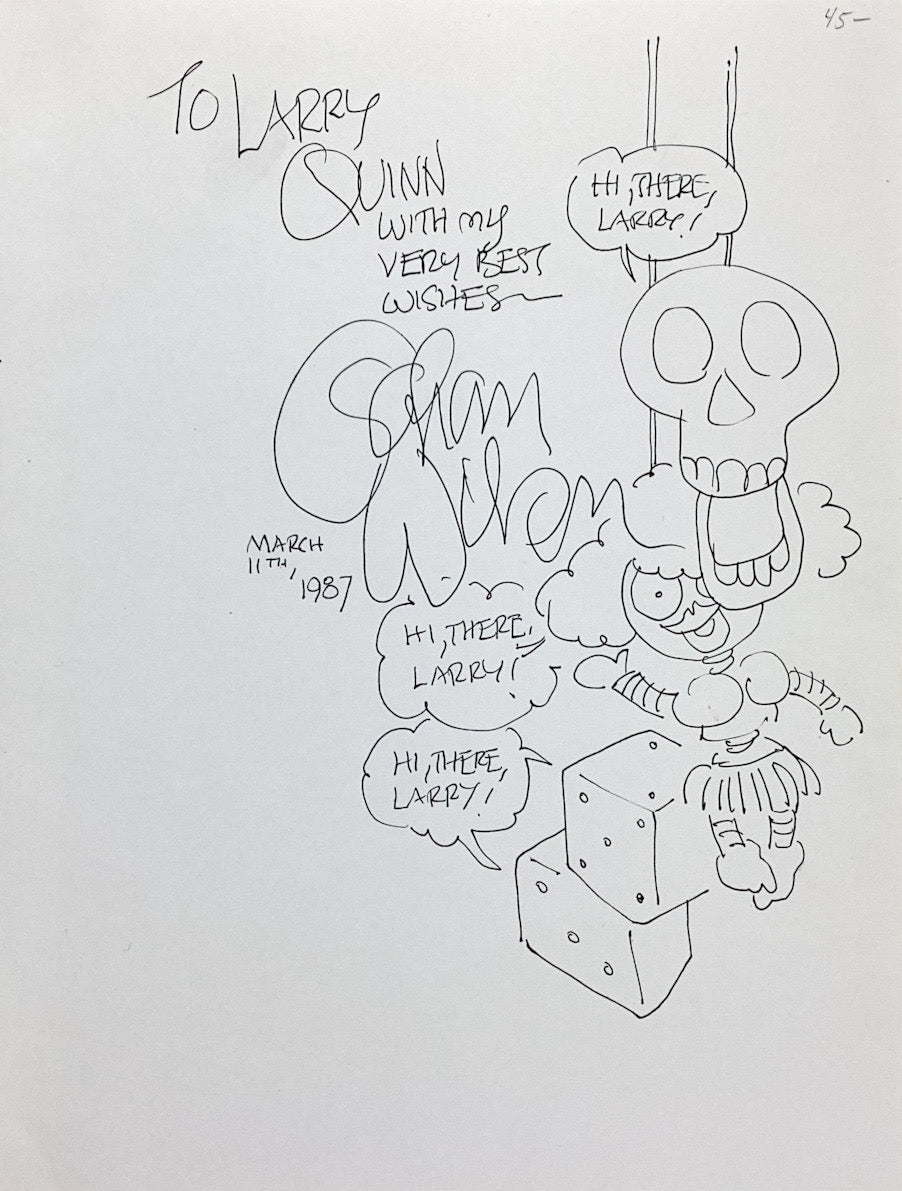 45—
TO LARRY
QUINN
WITH MY
VERY BEST
WISHES—
Gahan
Wilson
MARCH
11TH,
1987
HI, THERE,
LARRY!
HI, THERE,
LARRY!
HI, THERE,
LARRY!